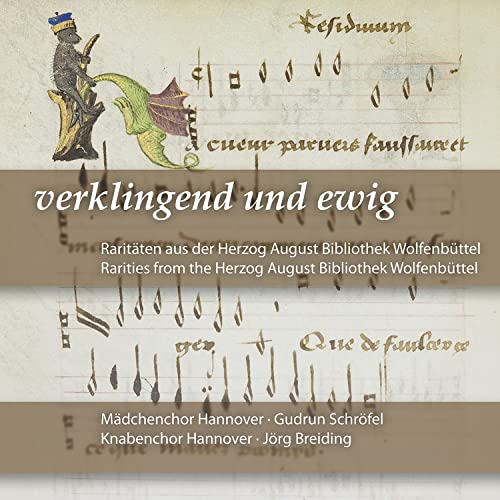 Residuum
cueur paruers faulsaire et
verklingend und ewig
Raritäten aus der Herzog August Bibliothek Wolfenbüttel
Rarities from the Herzog August Bibliothek Wolfenbüttel
ger Que de faulcerce
Mädchenchor Hannover · Gudrun Schröfel
Knabenchor Hannover · Jörg Breiding